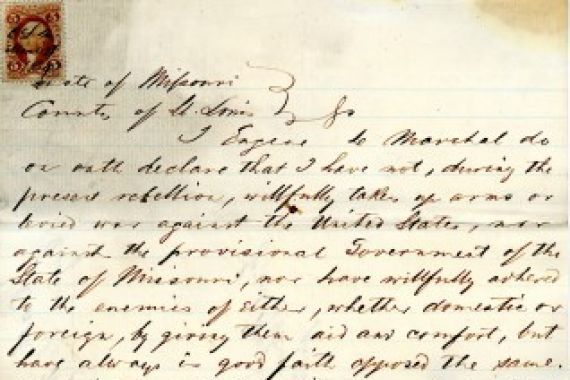 State of Missouri
County of St. Louis } ss
I Eugene Le Marchal do
on oath declare that I have not, during the
present rebellion, willfully taken up arms or
levied war against the United States, nor
against the provisional Government of the
State of Missouri, nor have willfully adhered
to the enemies of either, whether domestic or
foreign, by giving them aid and comfort, but
have always in good faith opposed the same.